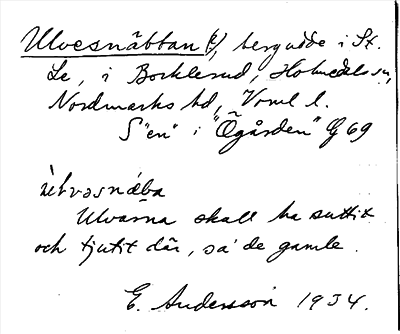 Ulvesnäbban (e), bergudde i St.
Le, i Bocklerud, Holmedals sn,
Nordmarks hd, Vrml l.
S "en" i "Ögården" G 69
ùlvəsnába
Ulvarna skall ha suttit
och tjutit där, sa' de gamle.
E. Andersson 1934.